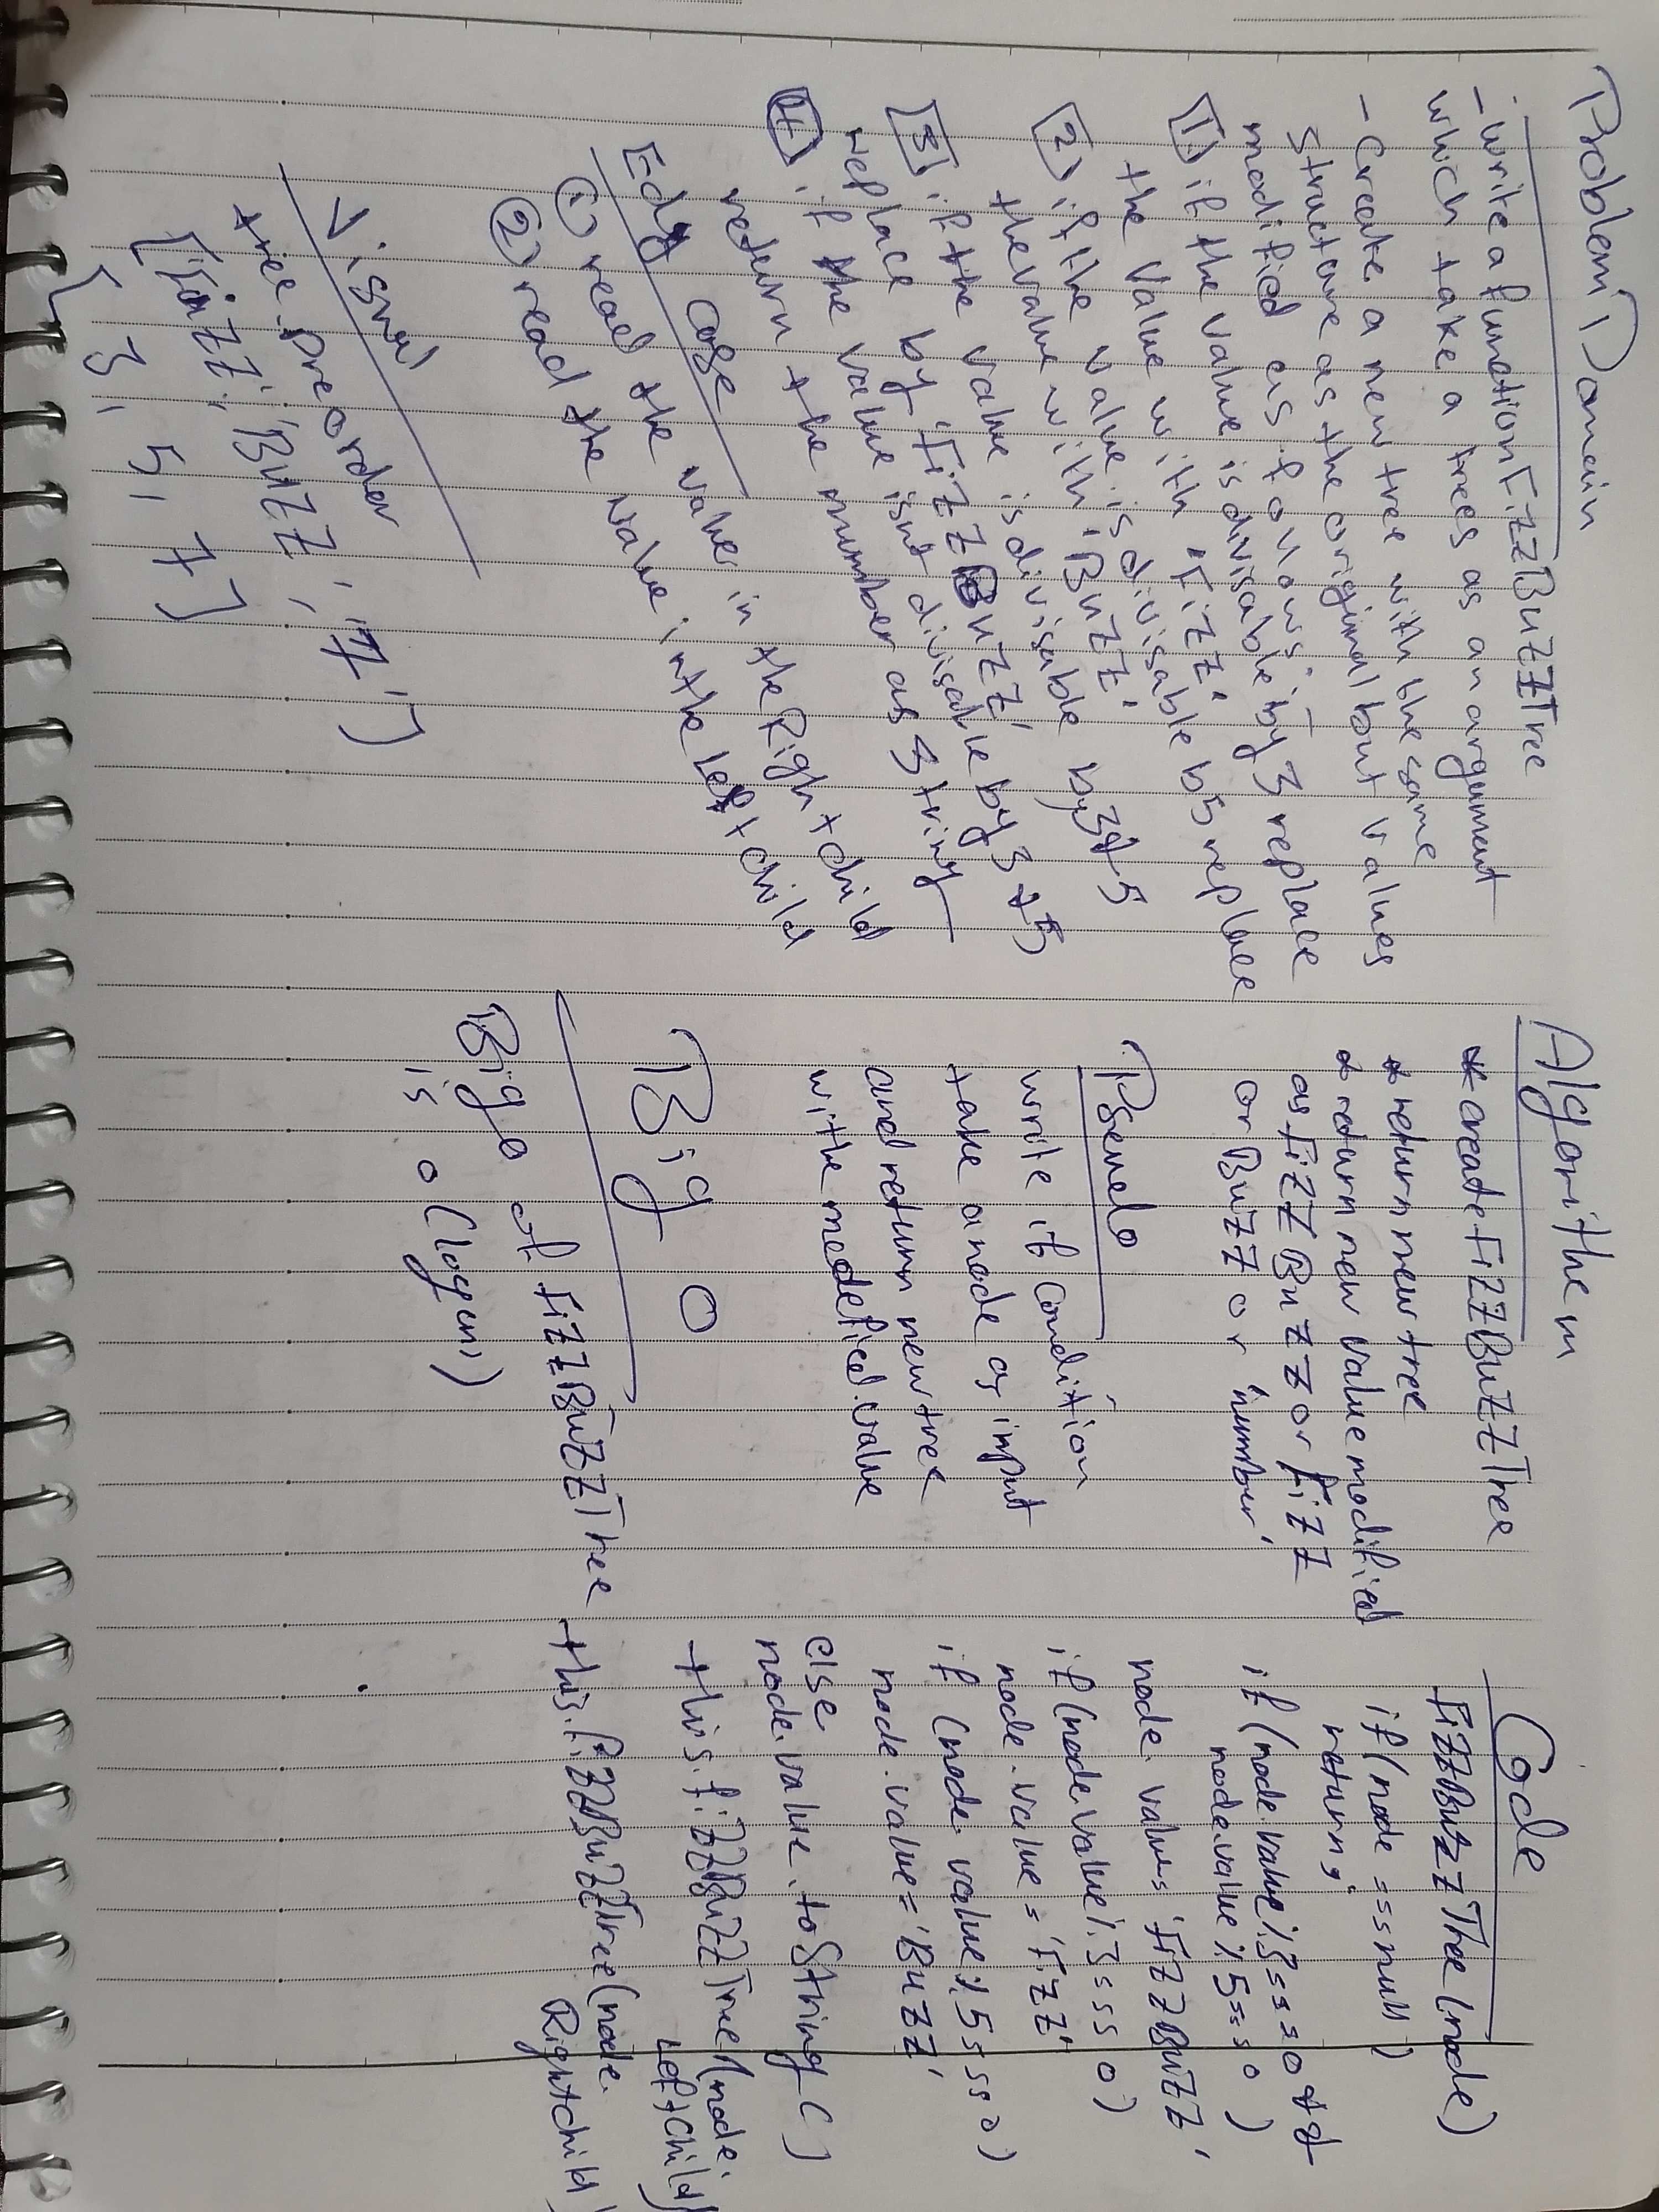 Problem Domain
- write a function FizzBuzzTree
which take a trees as an argument
- Create a new tree with the same
structure as the original but values
modified as follows:-
1. if the value is divisable by 3 replace
the value with 'Fizz'
2) if the value is divisable b5 replace
the value with 'Buzz'
3) if the value is divisable by 3&5
replace by 'FizzBuzz'
4. if the value isnt divisable by 3 & 5
return the number as string
Edg case
1) read the values in the Right child
2) read the value in the left child
Visual
tree.preorder
['Fizz', 'Buzz', '7']
[ 3, 5, 7 ]
Algorithem
* create FizzBuzzTree
* return new tree
* return new value modified
as FizzBuzz or Fizz
or Buzz or 'number'
Pseudo
write if Condition
take a node as input
and return new tree
withe modefied value
Big O
Bigo of FizzBuzzTree
is o(log(n))
Code
FizzBuzzTree(node)
if(node === null)
return;
if(node.value%3===0 &&
node.value%5===0)
node.value= 'FizzBuzz'
if(node.value%3===0)
node.value = 'Fizz'
if(node.value%5===0)
node.value='Buzz'
else
node.value.toString()
this.fizzBuzzTree(node.
leftchild)
this.fizzBuzzTree(node.
Rightchild)